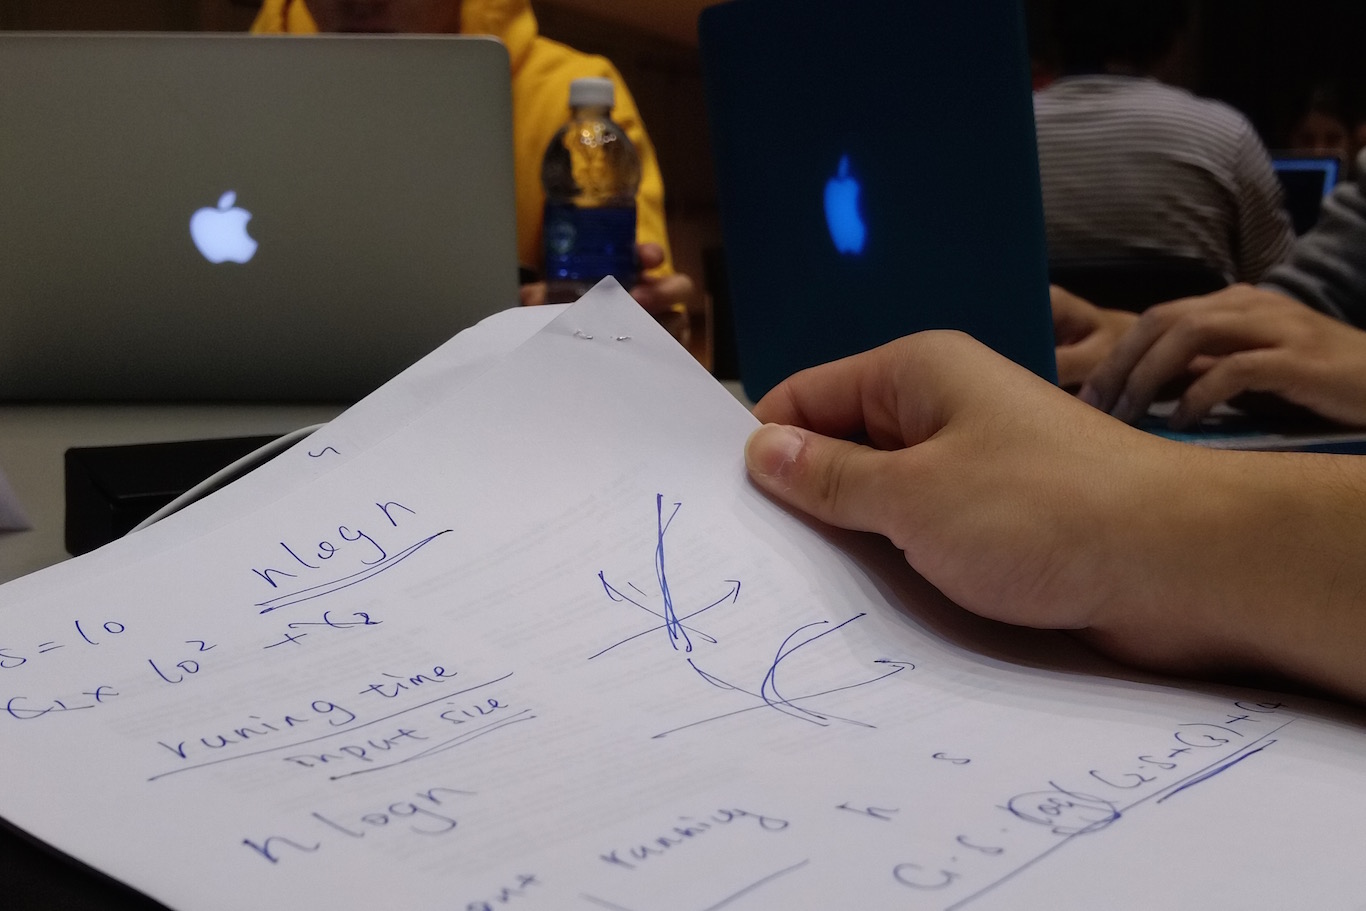 n log n
s = 10
C₁ × 10² + C₂
runing time
input size
n logn
running
n
s
C₁·s·log(C₂·s+C₃)+C₄